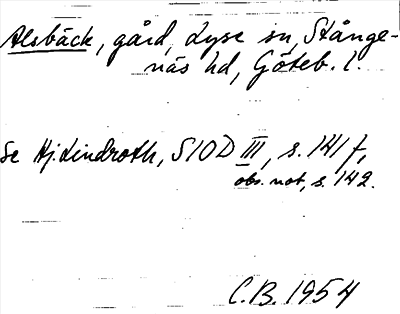 Alsbäck, gård, Lyse sn, Stånge-
näs hd, Göteb. l.
Se Hj. Lindroth, SIOD III, s. 141 f,
obs. not, s. 142.
C.B. 1954